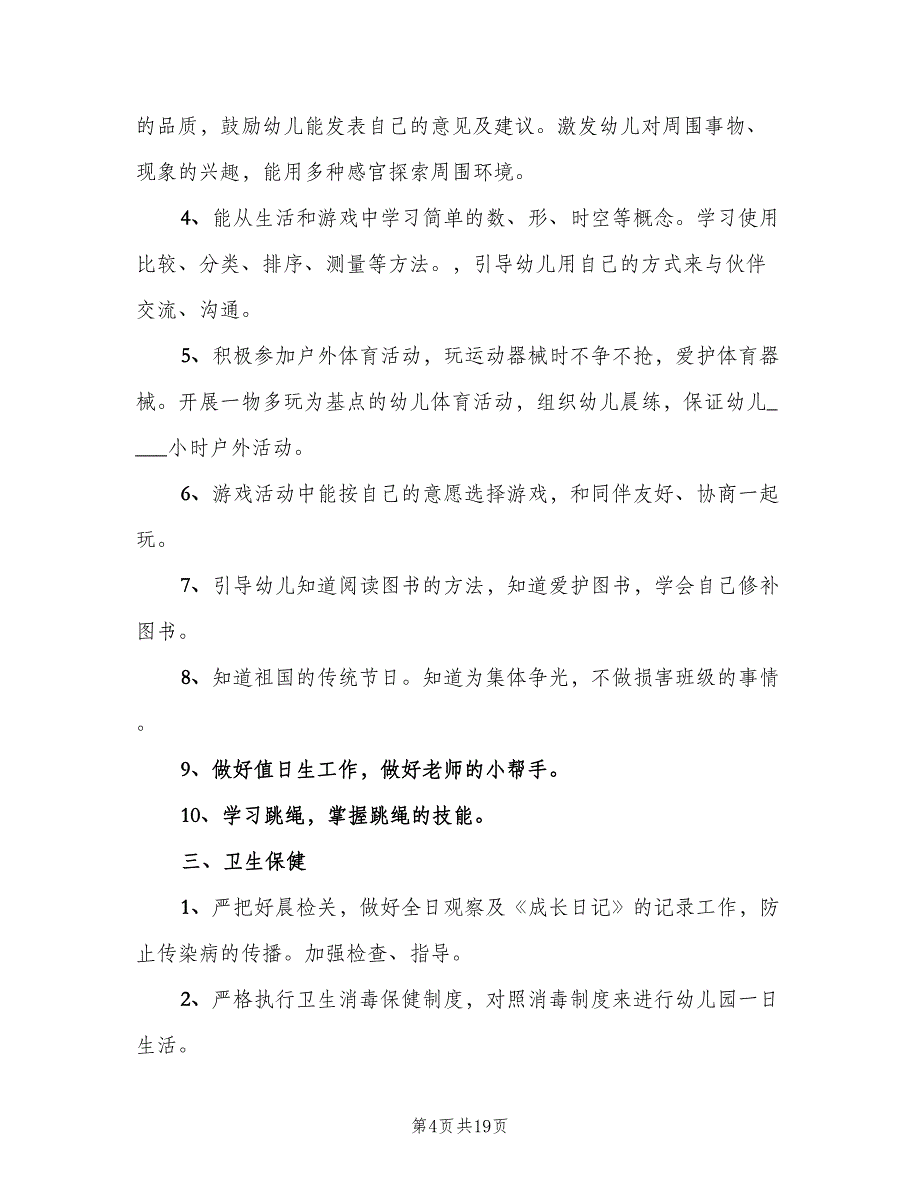 的品质，鼓励幼儿能发表自己的意见及建议。激发幼儿对周围事物、
现象的兴趣，能用多种感官探索周围环境。
4、能从生活和游戏中学习简单的数、形、时空等概念。学习使用
比较、分类、排序、测量等方法。，引导幼儿用自己的方式来与伙伴
交流、沟通。
5、积极参加户外体育活动，玩运动器械时不争不抢，爱护体育器
械。开展一物多玩为基点的幼儿体育活动，组织幼儿晨练，保证幼儿_
___小时户外活动。
6、游戏活动中能按自己的意愿选择游戏，和同伴友好、协商一起
玩。
7、引导幼儿知道阅读图书的方法，知道爱护图书，学会自己修补
图书。
8、知道祖国的传统节日。知道为集体争光，不做损害班级的事情
。
9、做好值日生工作，做好老师的小帮手。
10、学习跳绳，掌握跳绳的技能。
三、卫生保健
1、严把好晨检关，做好全日观察及《成长日记》的记录工作，防
止传染病的传播。加强检查、指导。
2、严格执行卫生消毒保健制度，对照消毒制度来进行幼儿园一日
生活。
第4页共19页